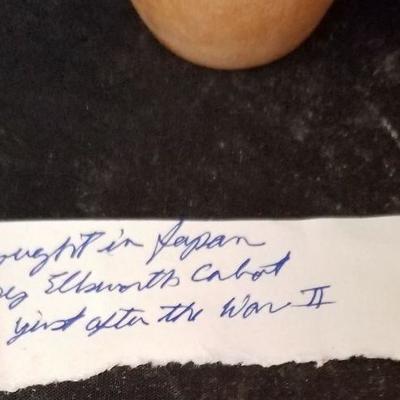 ought in Japan
by Ellsworth Cabot
just after the War II